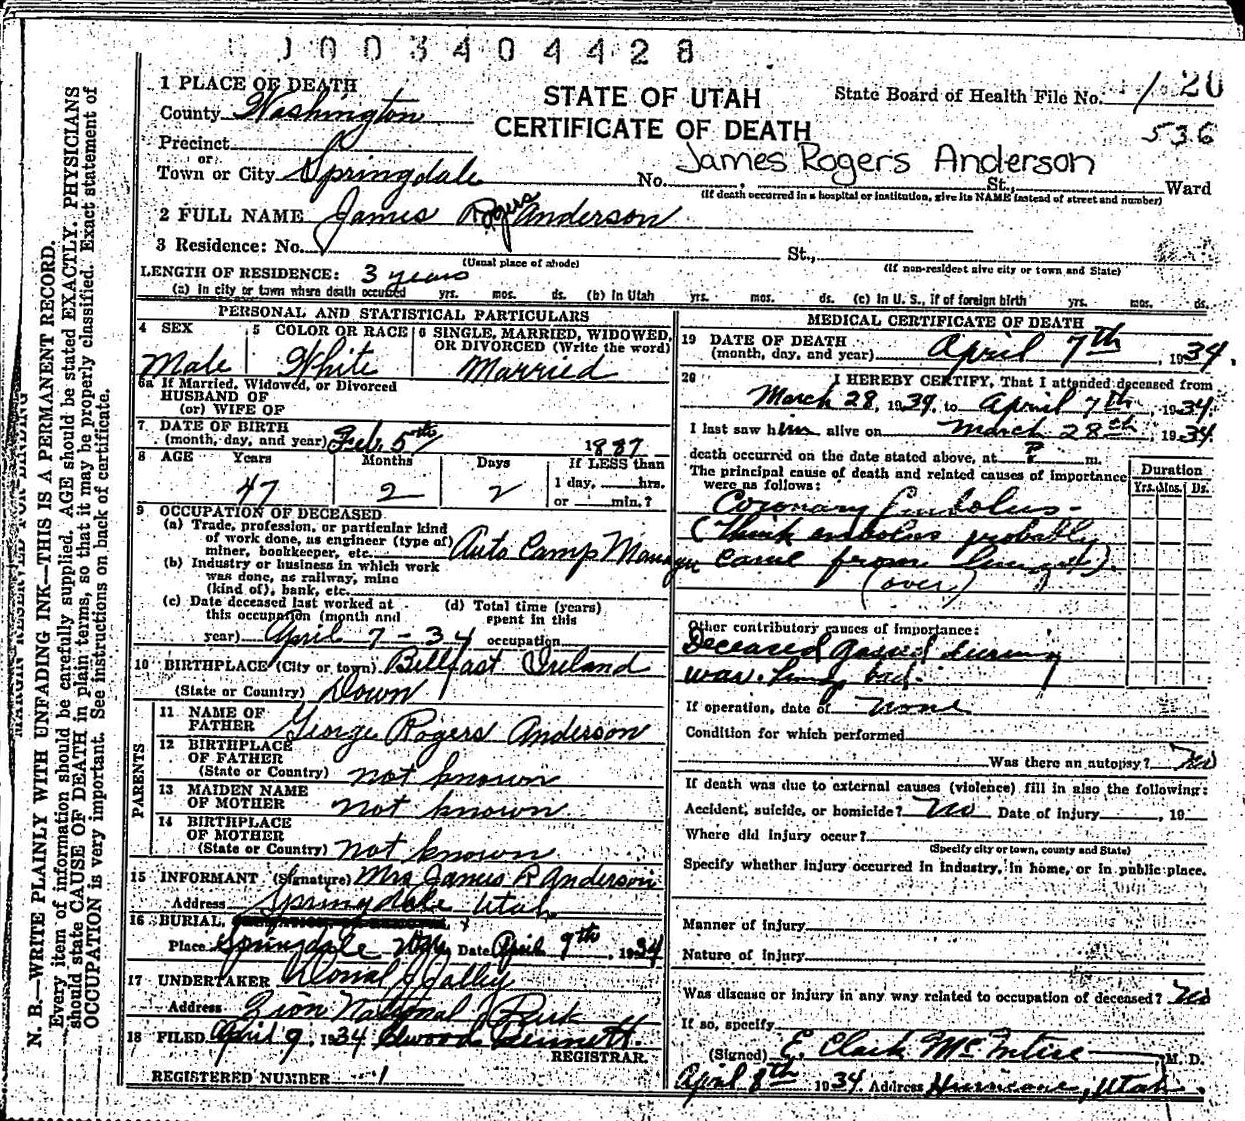 J003404428
1 PLACE OF DEATH
County Washington
Precinct
or
Town or City Springdale No. , St., Ward
STATE OF UTAH
CERTIFICATE OF DEATH
State Board of Health File No. 120
536
James Rogers Anderson
(If death occurred in a hospital or institution, give its NAME instead of street and number)
2 FULL NAME James Rogers Anderson
3 Residence: No. St.,
(Usual place of abode) (If non-resident give city or town and State)
LENGTH OF RESIDENCE: 3 years
(a) In city or town where death occurred yrs. mos. ds. (b) In Utah yrs. mos. ds. (c) In U. S., if of foreign birth yrs. mos. ds.
PERSONAL AND STATISTICAL PARTICULARS
4 SEX Male
5 COLOR OR RACE White
6 SINGLE, MARRIED, WIDOWED, OR DIVORCED (Write the word) Married
6a If Married, Widowed, or Divorced
HUSBAND OF
(or) WIFE OF
7 DATE OF BIRTH
(month, day, and year) Feb. 5th 1887
8 AGE Years Months Days If LESS than
47 2 2 1 day, hrs.
or min.?
9 OCCUPATION OF DECEASED
(a) Trade, profession, or particular kind
of work done, as engineer (type of)
miner, bookkeeper, etc. Auto Camp Manager
(b) Industry or business in which work
was done, as railway, mine
(kind of), bank, etc.
(c) Date deceased last worked at
this occupation (month and
year) April 7-34
(d) Total time (years)
spent in this
occupation
10 BIRTHPLACE (City or town) Bellfast Ireland
(State or Country) Down
PARENTS
11 NAME OF
FATHER George Rogers Anderson
12 BIRTHPLACE
OF FATHER
(State or Country) not known
13 MAIDEN NAME
OF MOTHER not known
14 BIRTHPLACE
OF MOTHER
(State or Country) not known
15 INFORMANT (Signature) Mrs James R Anderson
Address Springdale Utah.
16 BURIAL,
Place Springdale Date April 9th, 1934
17 UNDERTAKER Jolley
Address Zion National Park
18 FILED April 9, 1934 Elwood Dennett.
REGISTRAR.
REGISTERED NUMBER 1
MEDICAL CERTIFICATE OF DEATH
19 DATE OF DEATH
(month, day, and year) April 7th, 1934.
20 I HEREBY CERTIFY, That I attended deceased from
March 28, 1934, to April 7th, 1934.
I last saw him alive on March 28th, 1934.
death occurred on the date stated above, at ? m.
The principal cause of death and related causes of importance
were as follows:
Duration
Yrs. Mos. Ds.
Coronary Embolus-
(Think embolus probably
came from lungs).
(over)
Other contributory causes of importance:
Deceased gassed during
war. lungs bad.
If operation, date of None
Condition for which performed
Was there an autopsy? No
If death was due to external causes (violence) fill in also the following:
Accident, suicide, or homicide? No Date of injury , 19
Where did injury occur?
(Specify city or town, county and State)
Specify whether injury occurred in industry, in home, or in public place.
Manner of injury
Nature of injury
Was disease or injury in any way related to occupation of deceased? No
If so, specify
(Signed) E. Clark McIntire M. D.
April 8th 1934 Address Hurricane, Utah.
N. B.—WRITE PLAINLY WITH UNFADING INK—THIS IS A PERMANENT RECORD.
Every item of information should be carefully supplied. AGE should be stated EXACTLY. PHYSICIANS
should state CAUSE OF DEATH in plain terms, so that it may be properly classified. Exact statement of
OCCUPATION is very important. See instructions on back of certificate.